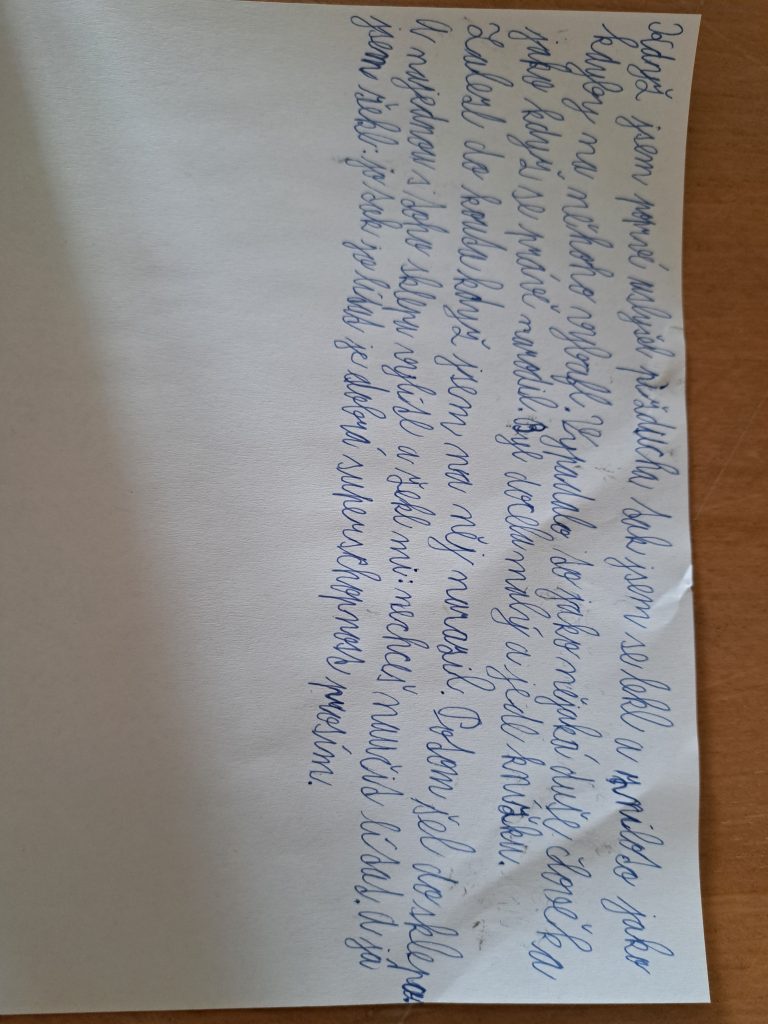 Když jsem poprvé uslyšel pižducha tak jsem se lekl a znilo to jako
kdyby na někoho vybafl. Vypadalo to jako nějaká duše človeka
jako když se právě narodil. Byl docela malý a jedl knížku.
Zalezl do kouta když jsem na něj narazil. Potom šel do sklepa
a najednou s toho sklepa vylítl a řekl mi: nechceš naučit lítat. A já
jsem řekl: jo tak jo lítat je dobrá superschopnost prosím.